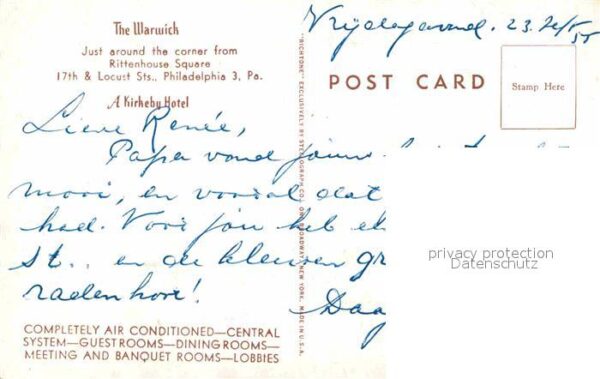 The Warwick
Just around the corner from
Rittenhouse Square
17th & Locust Sts., Philadelphia 3, Pa.
A Kirkeby Hotel
Vrijdagavond. 23.
POST CARD
Stamp Here
"RICHTONE" EXCLUSIVELY BY
NEW YORK. MADE IN U.S.A.
Lieve Renée,
Papa vond jouw
mooi, en vooral dat
had. Voor jou heb
St.. en de kleuren gr
raden hoor!
Daag
privacy protection
Datenschutz
COMPLETELY AIR CONDITIONED—CENTRAL
SYSTEM—GUEST ROOMS—DINING ROOMS—
MEETING AND BANQUET ROOMS—LOBBIES